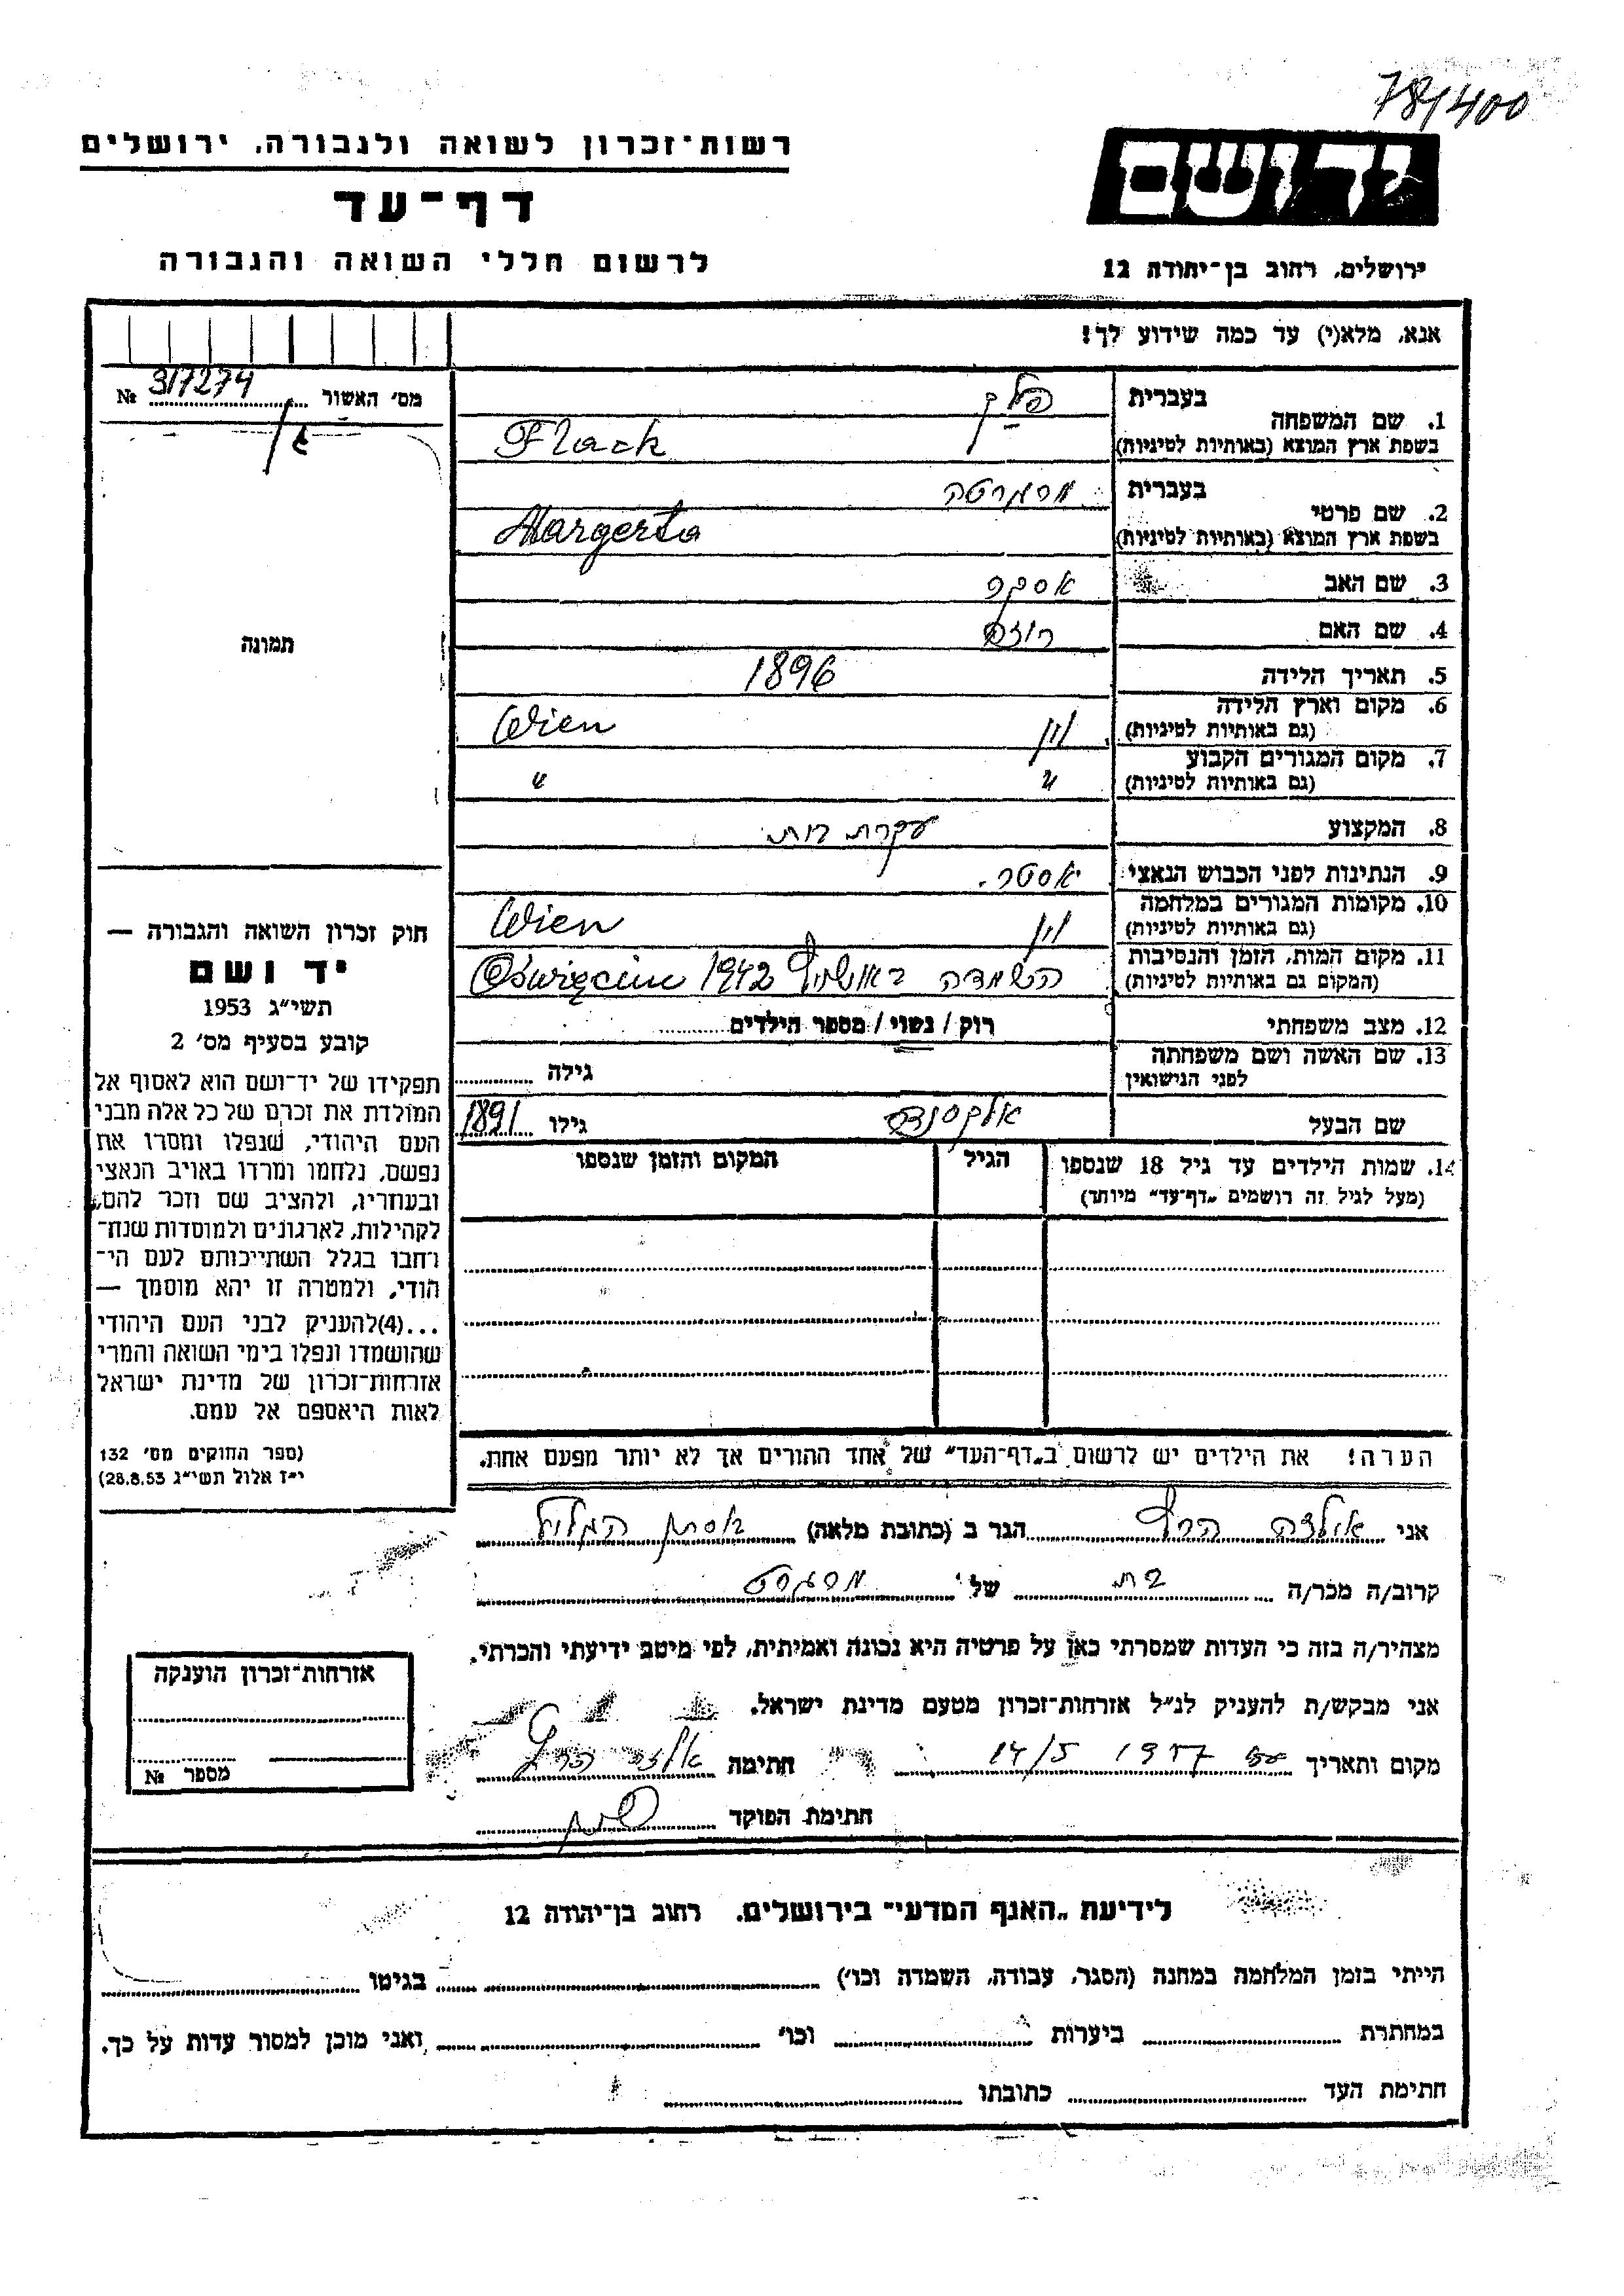 78/400
רשות־זכרון לשואה ולגבורה, ירושלים
דף־עד
לרשום חללי השואה והגבורה
יד ושם
ירושלים, רחוב בן־יהודה 12
אנא, מלא(י) עד כמה שידוע לך!
מס׳ האשור 317274 №
1. שם המשפחה
בעברית פלק
בשפת ארץ המוצא (באותיות לטיניות) Flack
2. שם פרטי
בעברית
בשפת ארץ המוצא (באותיות לטיניות) Margerta
3. שם האב אסקר
4. שם האם רוזה
5. תאריך הלידה 1896
6. מקום וארץ הלידה
(גם באותיות לטיניות) וין Wien
7. מקום המגורים הקבוע
(גם באותיות לטיניות) " "
8. המקצוע עקרת בית
9. הנתינות לפני הכבוש הנאצי אסטר.
10. מקומות המגורים במלחמה
(גם באותיות לטיניות) וין Wien
11. מקום המות, הזמן והנסיבות
(המקום גם באותיות לטיניות) השמדה באושויץ 1942 Oświęcim
12. מצב משפחתי רוק / נשוי / מספר הילדים
13. שם האשה ושם משפחתה
לפני הנישואין גילה
שם הבעל אלכסנדר גילו 1891
14. שמות הילדים עד גיל 18 שנספו הגיל המקום והזמן שנספו
(מעל לגיל זה רושמים „דף־עד” מיוחד)
תמונה
חוק זכרון השואה והגבורה —
יד ושם
תשי״ג 1953
קובע בסעיף מס׳ 2
תפקידו של יד־ושם הוא לאסוף אל
המולדת את זכרם של כל אלה מבני
העם היהודי, שנפלו ומסרו את
נפשם, נלחמו ומרדו באויב הנאצי
ובעוזריו, ולהציב שם וזכר להם,
לקהילות, לארגונים ולמוסדות שנח־
רחבו בגלל השתייכותם לעם הי־
הודי, ולמטרה זו יהא מוסמך —
...(4)להעניק לבני העם היהודי
שהושמדו ונפלו בימי השואה והמרי
אזרחות־זכרון של מדינת ישראל
לאות היאספם אל עמם.
(ספר החוקים מס׳ 132
י״ז אלול תשי״ג 28.8.53)
הערה! את הילדים יש לרשום ב„דף־העד” של אחד ההורים אך לא יותר מפעם אחת.
אני הגר ב (כתובת מלאה)
קרוב/ה מכר/ה בת של
מצהיר/ה בזה כי העדות שמסרתי כאן על פרטיה היא נכונה ואמיתית, לפי מיטב ידיעתי והכרתי.
אני מבקש/ת להעניק לנ״ל אזרחות־זכרון מטעם מדינת ישראל.
מקום ותאריך 14/5 1957 חתימה
חתימת הפוקד
אזרחות־זכרון הוענקה
מספר №
לידיעת „האגף המדעי” בירושלים, רחוב בן־יהודה 12
הייתי בזמן המלחמה במחנה (הסגר, עבודה, השמדה וכו׳) בגיטו
במחתרת ביערות וכו׳ ואני מוכן למסור עדות על כך.
חתימת העד כתובתו